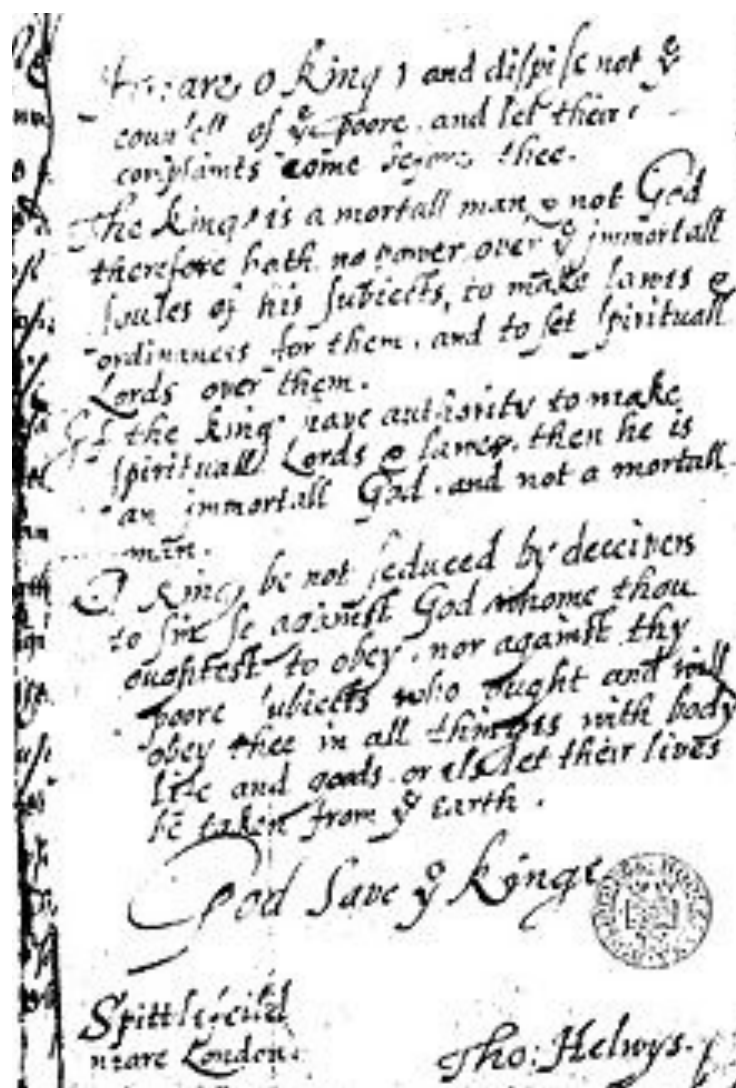 Heare o King, and dispise not yͤ
counsell of yͤ poore, and let their
complaints come before thee.
The King is a mortall man & not God
therefore hath no power over yͤ immortall
soules of his subiects, to make lawes &
ordinances for them, and to set spirituall
Lords over them.
If the King have authority to make
spirituall Lords & lawes, then he is
an immortall God, and not a mortall
man.
O King be not seduced by deceivers
to sin so against God whome thou
oughtest to obey, nor against thy
poore subiects who ought and will
obey thee in all thinges with body
life and goods, or els let their lives
be taken from yͤ earth.
God Save yͤ Kinge
Spittlefeild
neare London.
Tho: Helwys.